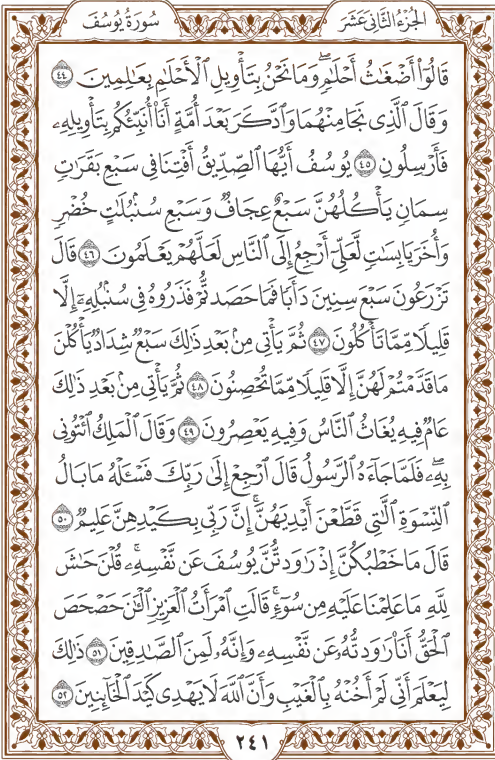 الجُزْءُ الثَّانِيَ عَشَرَ
سُورَةُ يُوسُفَ
قَالُوٓاْ أَضۡغَٰثُ أَحۡلَٰمٖۖ وَمَا نَحۡنُ بِتَأۡوِيلِ ٱلۡأَحۡلَٰمِ بِعَٰلِمِينَ ٤٤
وَقَالَ ٱلَّذِي نَجَا مِنۡهُمَا وَٱدَّكَرَ بَعۡدَ أُمَّةٍ أَنَا۠ أُنَبِّئُكُم بِتَأۡوِيلِهِۦ
فَأَرۡسِلُونِ ٤٥ يُوسُفُ أَيُّهَا ٱلصِّدِّيقُ أَفۡتِنَا فِي سَبۡعِ بَقَرَٰتٖ
سِمَانٖ يَأۡكُلُهُنَّ سَبۡعٌ عِجَافٞ وَسَبۡعِ سُنۢبُلَٰتٍ خُضۡرٖ
وَأُخَرَ يَابِسَٰتٖ لَّعَلِّيٓ أَرۡجِعُ إِلَى ٱلنَّاسِ لَعَلَّهُمۡ يَعۡلَمُونَ ٤٦ قَالَ
تَزۡرَعُونَ سَبۡعَ سِنِينَ دَأَبٗا فَمَا حَصَدتُّمۡ فَذَرُوهُ فِي سُنۢبُلِهِۦٓ إِلَّا
قَلِيلٗا مِّمَّا تَأۡكُلُونَ ٤٧ ثُمَّ يَأۡتِي مِنۢ بَعۡدِ ذَٰلِكَ سَبۡعٞ شِدَادٞ يَأۡكُلۡنَ
مَا قَدَّمۡتُمۡ لَهُنَّ إِلَّا قَلِيلٗا مِّمَّا تُحۡصِنُونَ ٤٨ ثُمَّ يَأۡتِي مِنۢ بَعۡدِ ذَٰلِكَ
عَامٞ فِيهِ يُغَاثُ ٱلنَّاسُ وَفِيهِ يَعۡصِرُونَ ٤٩ وَقَالَ ٱلۡمَلِكُ ٱئۡتُونِي
بِهِۦۖ فَلَمَّا جَآءَهُ ٱلرَّسُولُ قَالَ ٱرۡجِعۡ إِلَىٰ رَبِّكَ فَسۡـَٔلۡهُ مَا بَالُ
ٱلنِّسۡوَةِ ٱلَّٰتِي قَطَّعۡنَ أَيۡدِيَهُنَّۚ إِنَّ رَبِّي بِكَيۡدِهِنَّ عَلِيمٞ ٥٠
قَالَ مَا خَطۡبُكُنَّ إِذۡ رَٰوَدتُّنَّ يُوسُفَ عَن نَّفۡسِهِۦۚ قُلۡنَ حَٰشَ
لِلَّهِ مَا عَلِمۡنَا عَلَيۡهِ مِن سُوٓءٖۚ قَالَتِ ٱمۡرَأَتُ ٱلۡعَزِيزِ ٱلۡـَٰٔنَ حَصۡحَصَ
ٱلۡحَقُّ أَنَا۠ رَٰوَدتُّهُۥ عَن نَّفۡسِهِۦ وَإِنَّهُۥ لَمِنَ ٱلصَّٰدِقِينَ ٥١ ذَٰلِكَ
لِيَعۡلَمَ أَنِّي لَمۡ أَخُنۡهُ بِٱلۡغَيۡبِ وَأَنَّ ٱللَّهَ لَا يَهۡدِي كَيۡدَ ٱلۡخَآئِنِينَ ٥٢
٢٤١